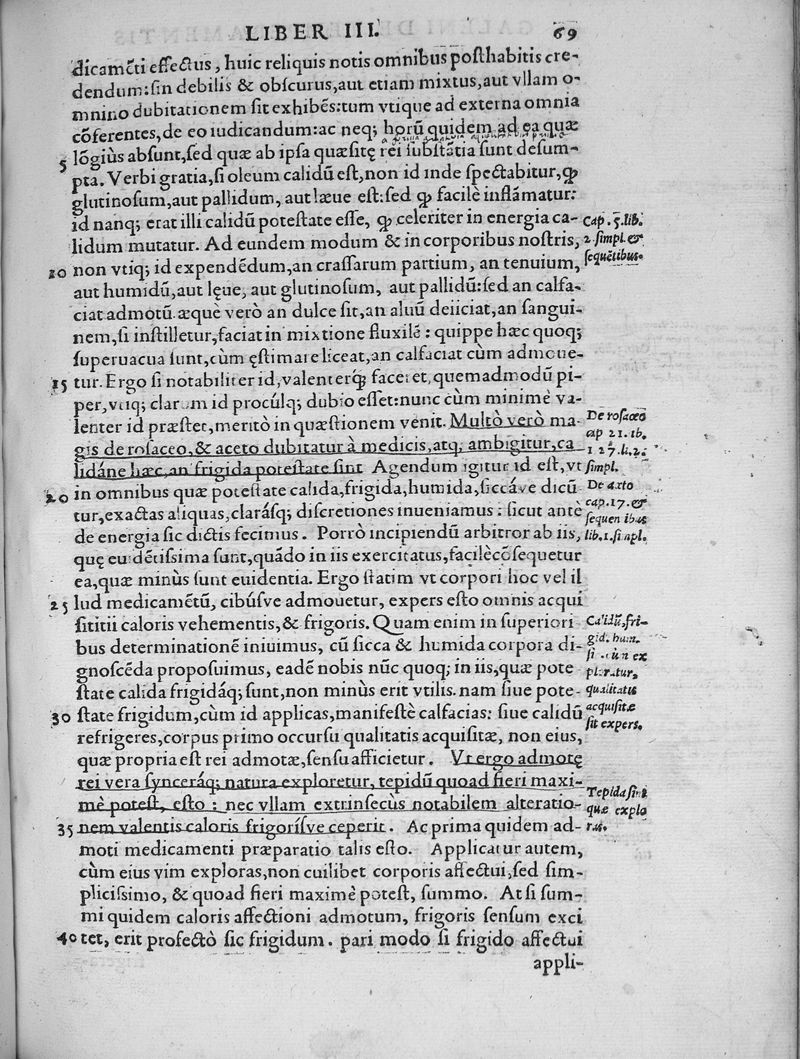 LIBER III. 69
dicamẽti effectus, huic reliquis notis omnibus posthabitis cre-
dendum: sin debilis & obscurus, aut etiam mixtus, aut vllam o-
mnino dubitationem sit exhibẽs: tum vtique ad externa omnia
cõferentes, de eo iudicandum: ac neq; horũ quidem ad ea quæ
5 lõgiùs absunt, sed quæ ab ipsa quæsitę rei substãtia sunt desum-
pta. Verbi gratia, si oleum calidũ est, non id inde spectabitur, ꝙ
glutinosum, aut pallidum, aut læue est: sed ꝙ facilè inflãmatur:
id nanq; erat illi calidũ potestate esse, ꝙ celeriter in energia ca- Cap. 5. lib.
lidum mutatur. Ad eundem modum & in corporibus nostris, 2. simpl. &
10 non vtiq; id expendẽdum, an crassarum partium, an tenuium, sequẽtibus.
aut humidũ, aut lęue, aut glutinosum, aut pallidũ: sed an calfa-
ciat admotũ. æquè verò an dulce sit, an aluũ deiiciat, an sangui-
nem, si instilletur, faciat in mixtione fluxilẽ: quippe hæc quoq;
superuacua sunt, cùm ęstimare liceat, an calfaciat cùm admoue-
15 tur. Ergo si notabiliter id, valenterq́; faceret, quemadmodũ pi-
per, vtiq; clarum id procúlq; dubio esset: nunc cùm minimè va-
lenter id præstet, meritò in quæstionem venit. Multò verò ma- De rosaceo
gis de rosaceo, & aceto dubitatur à medicis, atq; ambigitur, ca cap 21. lib.
lidáne hæc, an frigida potestate sint Agendum igitur id est, vt simpl.
20 in omnibus quæ potestate calida, frigida, humida, siccáve dicũ De axto
tur, exactas aliquas, clarásq; discretiones inueniamus: sicut antè cap. 17. &
de energia sic dictis fecimus. Porrò incipiendũ arbitror ab iis, sequentibus
quę euidẽtissima sunt, quãdo in iis exercitatus, facilè cõsequetur lib. 1. simpl.
ea, quæ minùs sunt euidentia. Ergo statim vt corpori hoc vel il
25 lud medicamẽtũ, cibúsve admouetur, expers esto omnis acqui
sititii caloris vehementis, & frigoris. Quam enim in superiori Calidũ, fri-
bus determinationẽ iniuimus, cũ sicca & humida corpora di- gid. hum.
gnoscẽda proposuimus, eadẽ nobis nũc quoq; in iis, quæ pote ploratur,
state calida frigidáq; sunt, non minùs erit vtilis. nam siue pote- qualitatis
30 state frigidum, cùm id applicas, manifestè calfacias: siue calidũ acquisitæ
refrigeres, corpus primo occursu qualitatis acquisitæ, non eius, sit expers.
quæ propria est rei admotæ, sensu afficietur. Vt ergo admotę
rei vera synceráq; natura exploretur, tepidũ quoad fieri maxi-
mè potest, esto: nec vllam extrinsecùs notabilem alteratio- Tepida sint quæ explo
35 nem valentis caloris frigorísve ceperit. Ac prima quidem ad- ras.
moti medicamenti præparatio talis esto. Applicatur autem,
cùm eius vim exploras, non cuilibet corporis affectui, sed sim-
plicissimo, & quoad fieri maximè potest, summo. At si sum-
mi quidem caloris affectioni admotum, frigoris sensum exci
40 tet, erit profectò sic frigidum. pari modo si frigido affectui
appli-